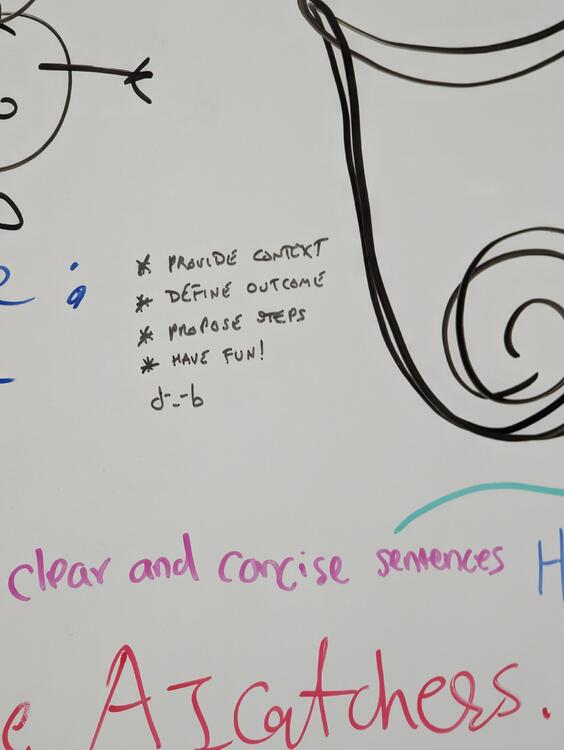 e ;
* PROVIDE CONTEXT
* DEFINE OUTCOME
* PROPOSE STEPS
* HAVE FUN!
d-_-b
clear and concise sentences H
e AI catchers.